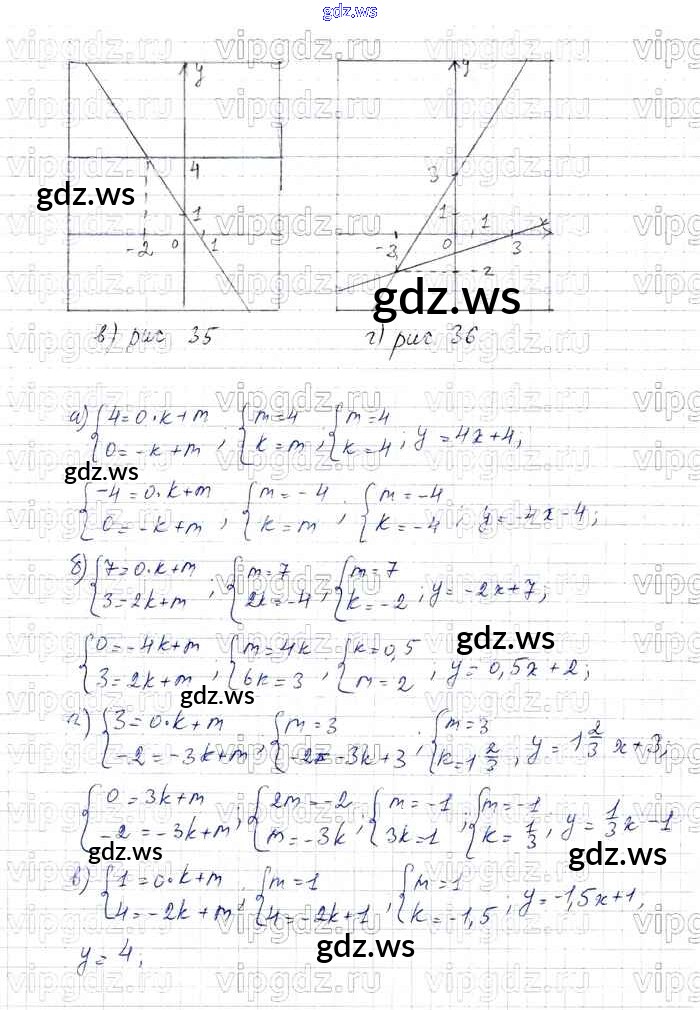 gdz.ws
y y
4 3
gdz.ws
1 1 1 x
-2 0 1 -3 0 3
-2
gdz.ws
в) рис 35 г) рис 36
а) {4=0·k+m 0=-k+m ; {m=4 k=m ; {m=4 k=4 ; y=4x+4;
gdz.ws
{-4=0·k+m 0=-k+m ; {m=-4 k=m ; {m=-4 k=-4 ; y=-4x-4;
б) {7=0·k+m 3=2k+m ; {m=7 2k=-4 ; {m=7 k=-2 ; y=-2x+7;
gdz.ws
{0=-4k+m 3=2k+m ; {m=4k 6k=3 ; {k=0,5 m=2 ; y=0,5x+2;
gdz.ws
г) {3=0·k+m -2=-3k+m ; {m=3 -2=-3k+3 ; {m=3 k=1 2/3 ; y=1 2/3 x+3;
{0=3k+m -2=-3k+m ; {2m=-2 m=-3k ; {m=-1 3k=1 ; {m=-1 k=1/3 ; y=1/3 x-1
gdz.ws gdz.ws
в) {1=0·k+m 4=-2k+m ; {m=1 4=-2k+1 ; {m=1 k=-1,5 ; y=-1,5x+1;
gdz.ws
y=4;